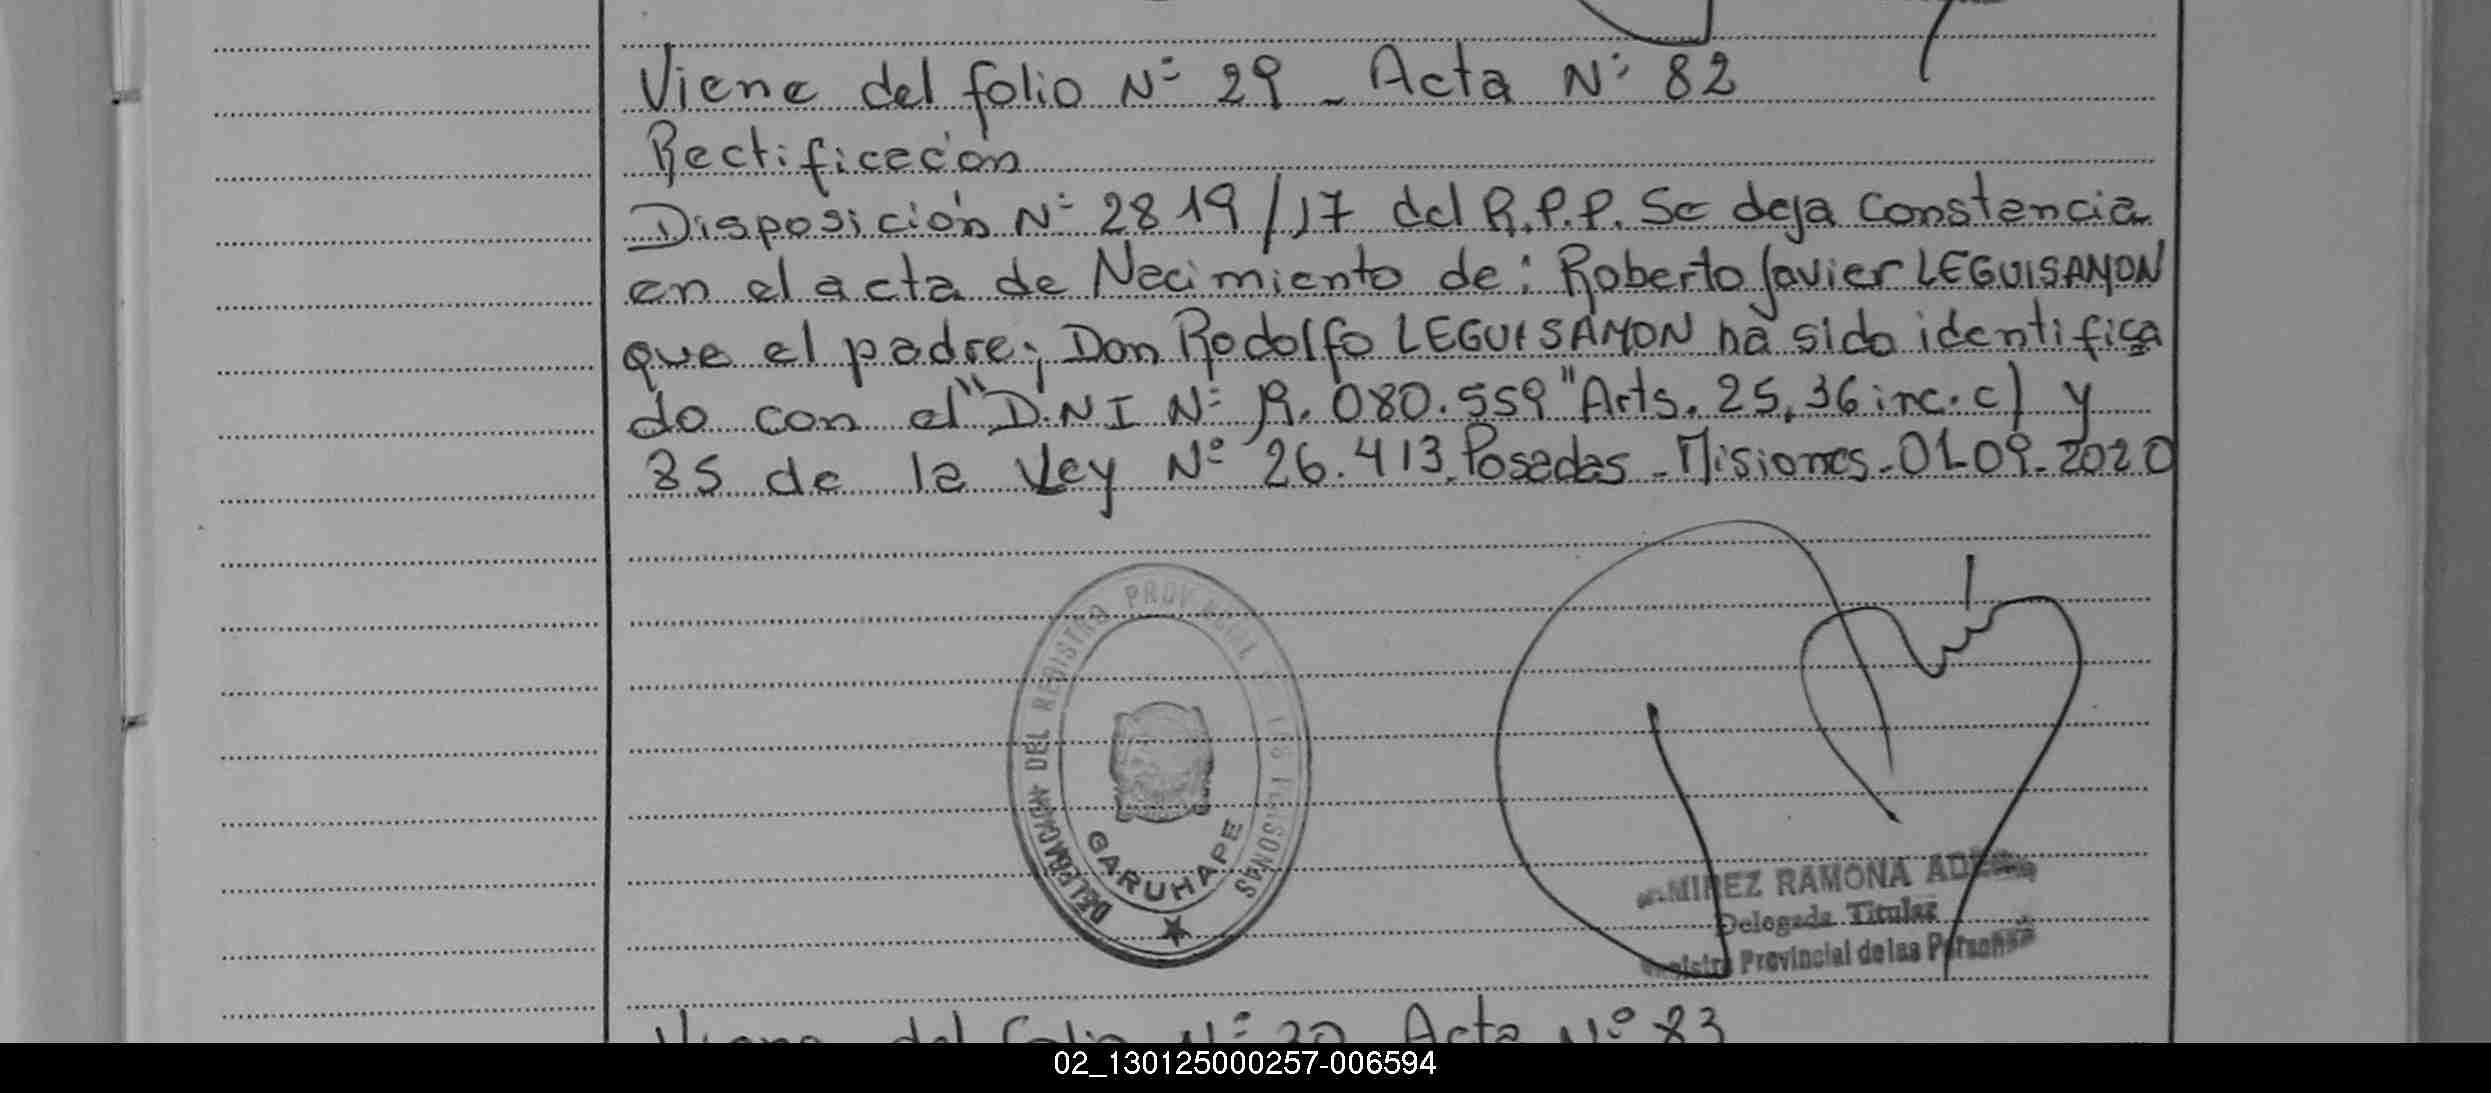 Viene del folio Nº 29 - Acta Nº 82
Rectificación
Disposición Nº 2819/17 del R.P.P. Se deja Constancia
en el acta de Nacimiento de: Roberto Javier LEGUISAMON
que el padre; Don Rodolfo LEGUISAMON ha sido identifica
do con el "D.N I Nº 080.559" Arts. 25, 36 inc. c) y
85 de la Ley Nº 26.413. Posadas - Misiones - 01-09-2020
DELEGACIÓN DEL REGISTRO PROVINCIAL DE LAS PERSONAS
GARUHAPE
RAMONA
Delegada Titular
Provincial de las Personas
Viene del folio Nº Acta Nº 83
02_130125000257-006594